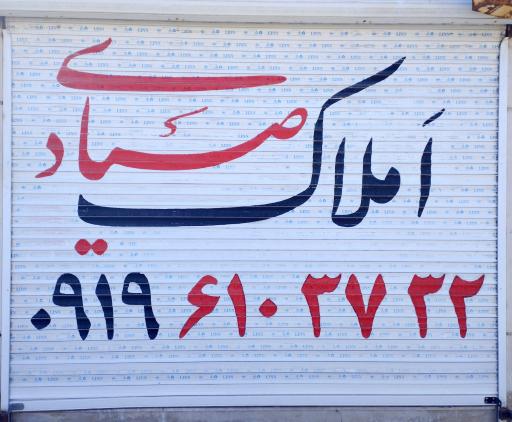 املاک صیادی
۰۹۱۹ ۶۱۰ ۳۷ ۲۲